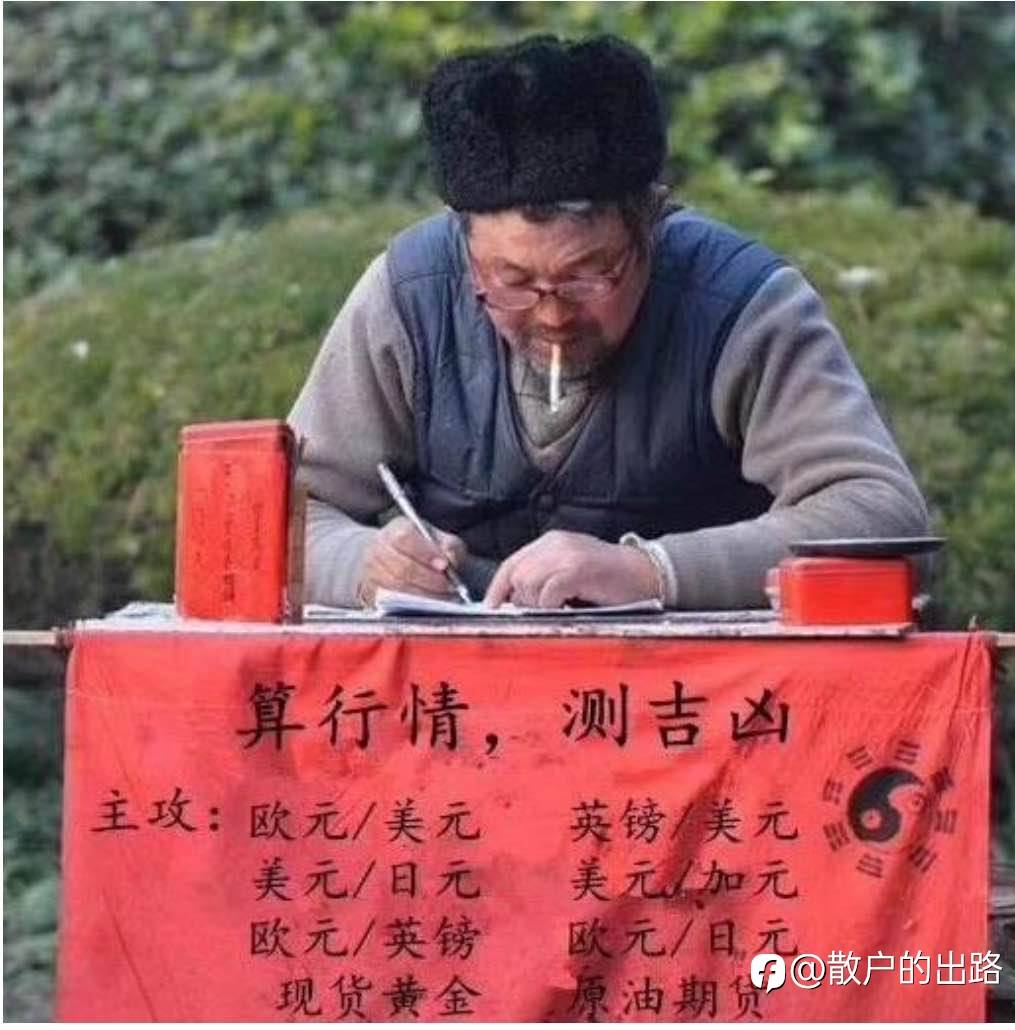 算行情，测吉凶
主攻：欧元/美元 英镑/美元
美元/日元 美元/加元
欧元/英镑 欧元/日元
现货黄金 原油期货
@散户的出路